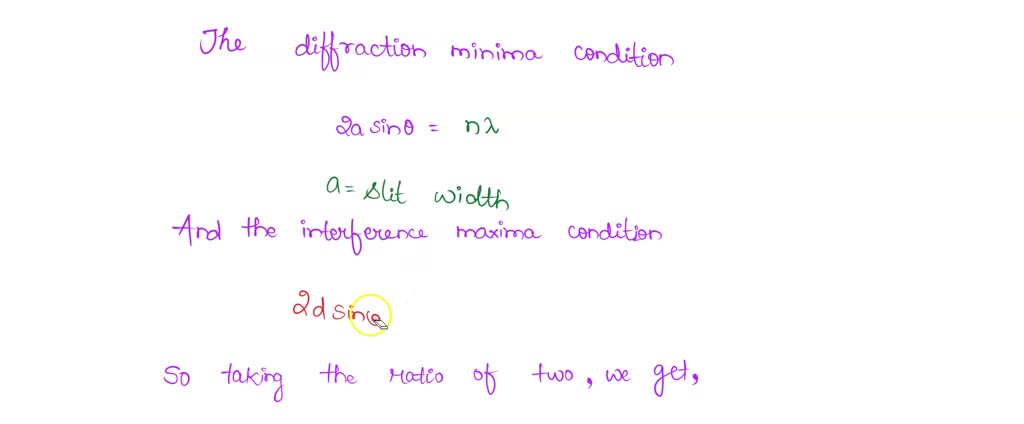 The diffraction minima condition
2a sinθ = nλ
a = slit width
And the interference maxima condition
2d sinθ
So taking the ratio of two, we get,